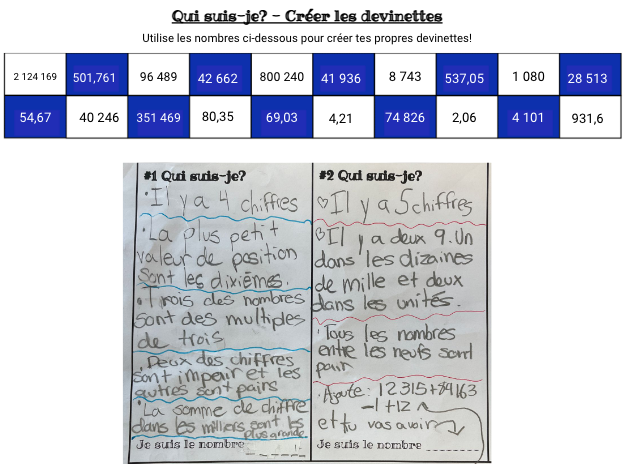 Qui suis-je? - Créer les devinettes
Utilise les nombres ci-dessous pour créer tes propres devinettes!
2 124 169 501,761 96 489 42 662 800 240 41 936 8 743 537,05 1 080 28 513
54,67 40 246 351 469 80,35 69,03 4,21 74 826 2,06 4 101 931,6
#1 Qui suis-je?
·Il y a 4 chiffres
·La plus petit
valeur de position
sont les dixièmes.
·Trois des nombres
sont des multiples
de trois
·Deux des chiffres
sont impair et les
autres sont pairs
·La somme de chiffre
dans les milliers sont les
plus grande
Je suis le nombre _ _ _ _ _
#2 Qui suis-je?
♡Il y a 5 chiffres
Il y a deux 9. Un
dans les dizaines
de mille et deux
dans les unités.
·Tous les nombres
entre les neufs sont
pair
·Ajoute: 12315+84163
-1+12
et tu vas avoir
Je suis le nombre _______